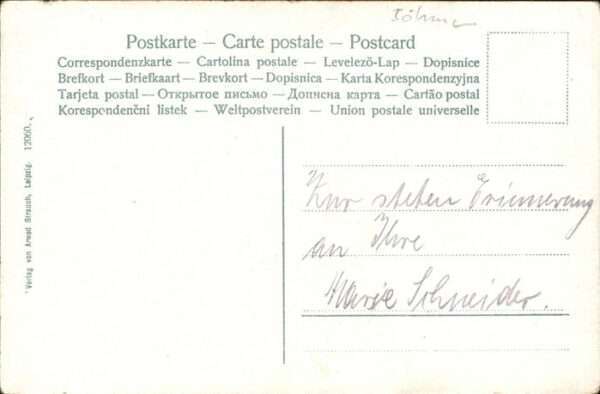 Böhme
Postkarte — Carte postale — Postcard
Correspondenzkarte — Cartolina postale — Levelező-Lap — Dopisnice
Brefkort — Briefkaart — Brevkort — Dopisnica — Karta Korespondenzyjna
Tarjeta postal — Открытое письмо — Дописна карта — Cartão postal
Korespondenčni listek — Weltpostverein — Union postale universelle
Verlag von Arwed Strauch, Leipzig. 12060.
Zur steten Erinnerung
an Ihre
Marie Schneider.